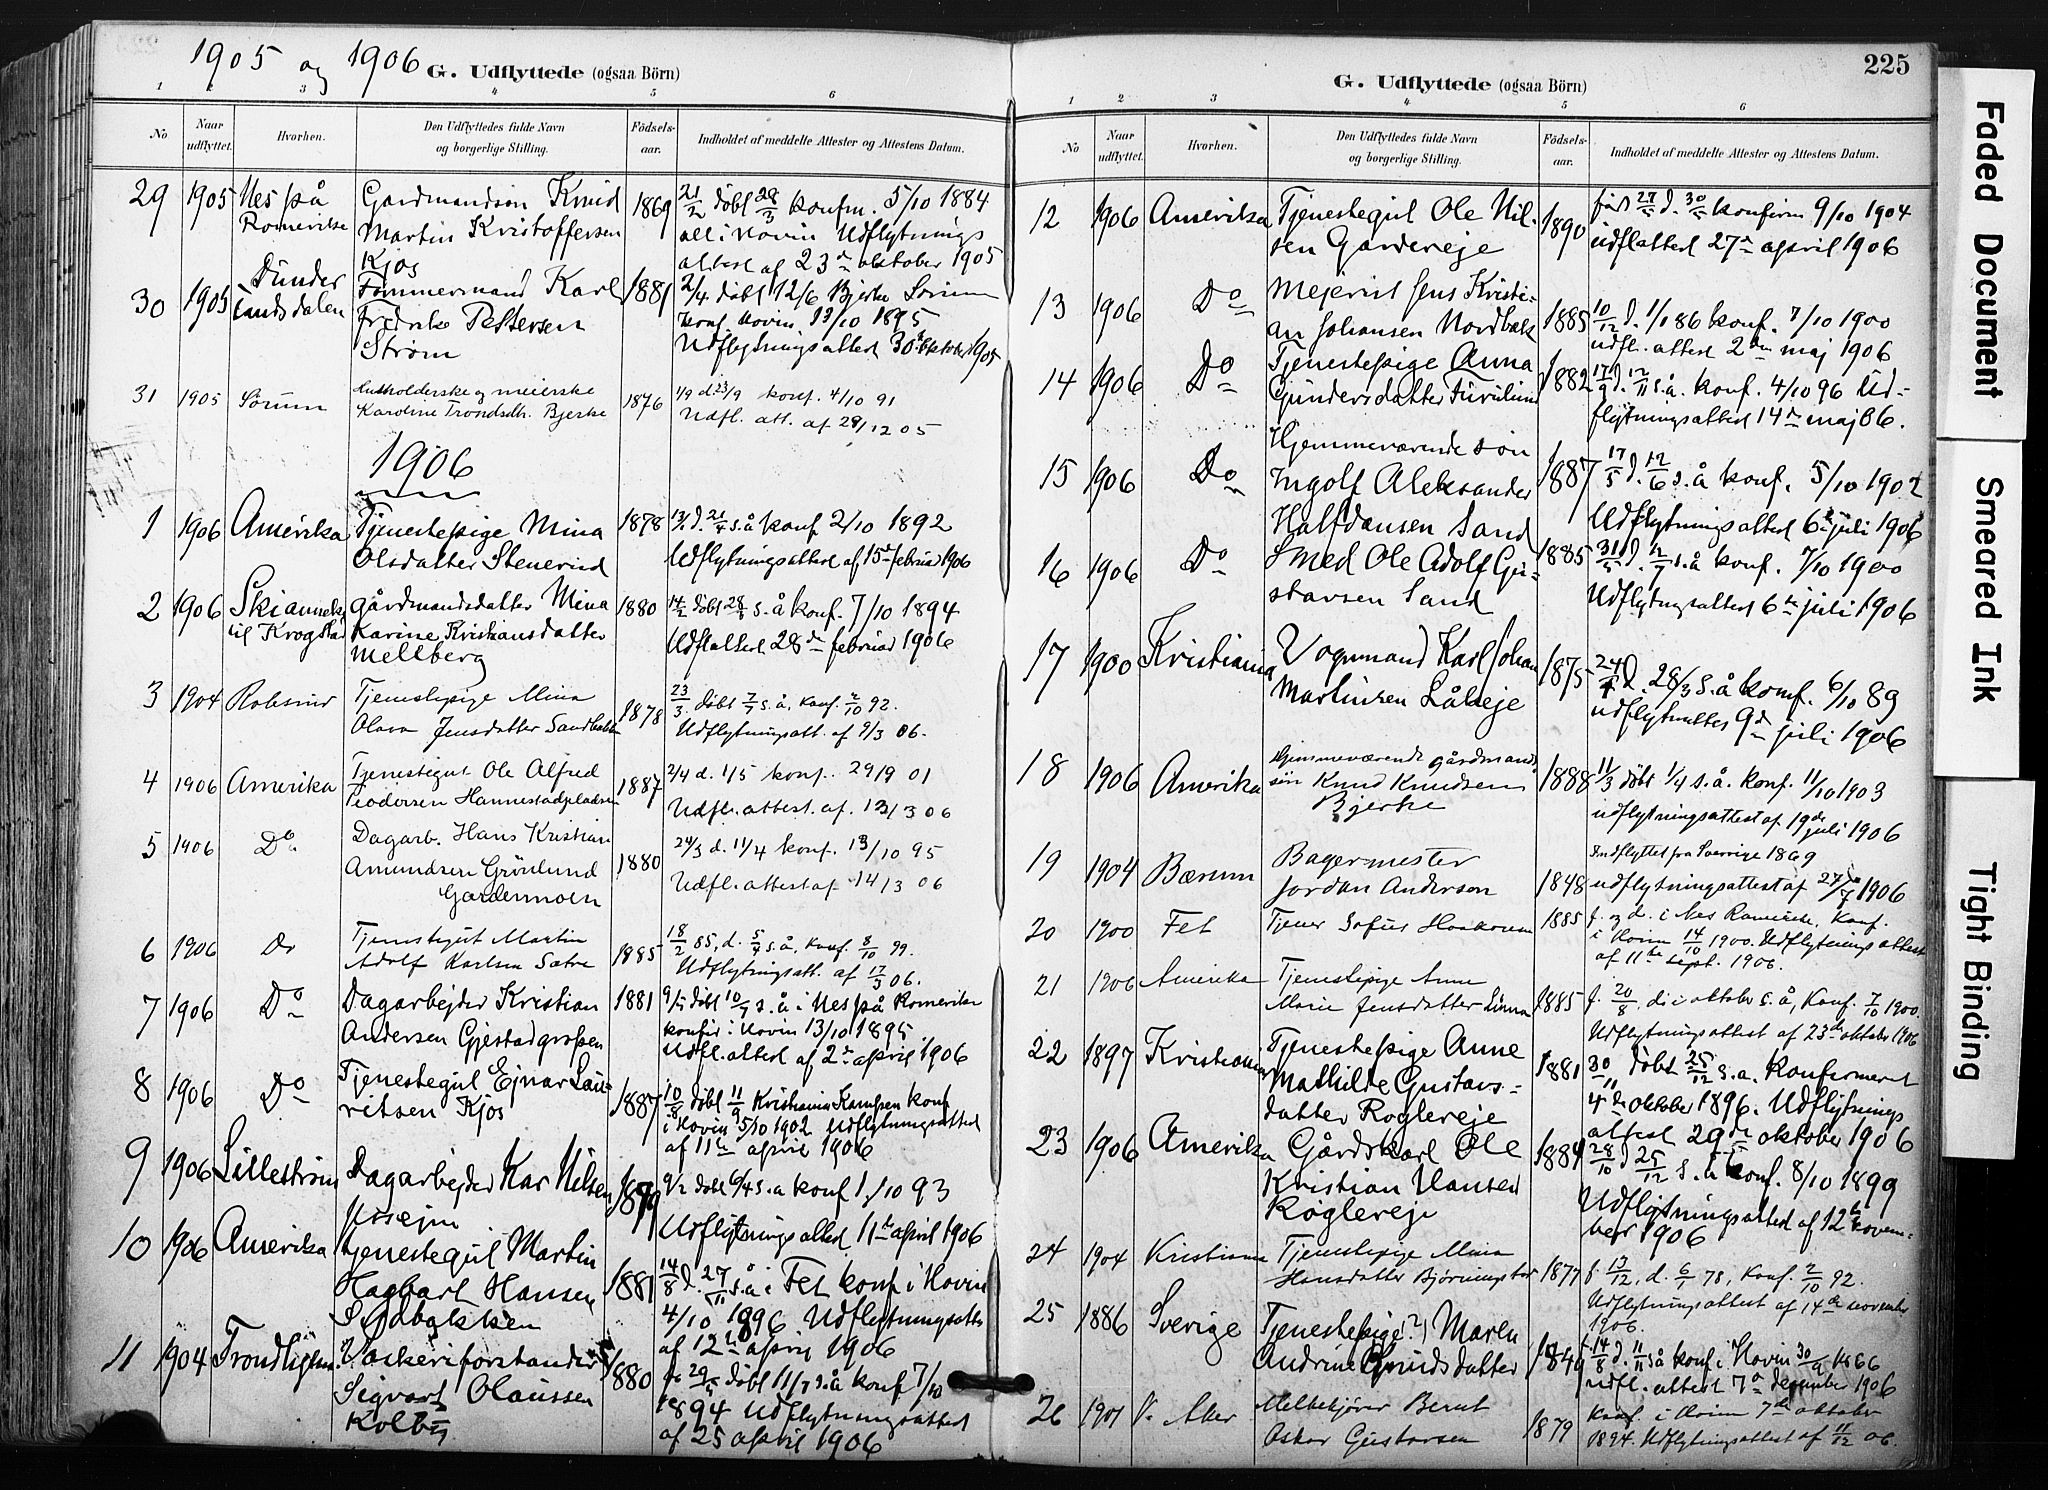 1905 og 1906
G. Udflyttede (ogsaa Börn)
1 2 3 4 5 6
No
Naar udflyttet.
Hvorhen.
Den Udflyttedes fulde Navn og borgerlige Stilling.
Födsels-aar.
Indholdet af meddelte Attester og Attestens Datum.
29 1905 Nes på Gardmandsön Knud 1869 21/2 döbt 28/3 konfm. 5/10 1884
Romerike Martin Kristoffersen alt i Hovin Udflytnings
Kjos attest af 23de oktober 1905
30 1905 Dunderlandsdalen Tømmermand Karl 1881 2/4 döbt 12/6 Bjerke Sörum
Fredrik Pettersen Konf. Hovin 13/10 1895
Strøm Udflytningsattest 30te oktober 1905
31 1905 Sörum Husholderske og meierske 1876 1/9 d. 23/9 konf. 4/10 91
Karoline Trondsdtr. Bjerke Udfl. att. af 29/12 05
1906
1 1906 Amerika Tjenestepige Mina 1878 d. 21/4 s. å konf 2/10 1892
Olsdatter Stenerud Udflytningsattest af 15de februar 1906
2 1906 Ski annex gårdmandsdatter Mina 1880 14/2 döbt 28/3 s. å konf. 7/10 1894
til Krogstad Karine Kristiansdatter Udflattest 28de februar 1906
Mellberg
3 1904 Tjenestepige Mina 1878 23/3 döbt s. å. konf. 2/10 92.
Olava Jensdatter Udflytningsatt. af 9/3 06.
4 1906 Amerika Tjenestegut Ole Alfred 1887 2/4 d. 1/5 konf. 29/9 01
Teodorsen Hannestadpladsen Udfl. attest. af. 13/3 06
5 1906 Do Dagarb. Hans Kristian 1880 24/3 d. 11/4 konf. 13/10 95
Amundsen Grönlund Udfl. attest af 14/3 06
Gardermoen
6 1906 Do Tjenestegut Martin 1885 18/2 85, d. 5/4 s. å. konf. 8/10 99.
Adolf Karlsen Sætre Udflytningsatt. af 17/3 06.
7 1906 Do Dagarbejder Kristian 1881 9/5 döbt 10/7 s. å i Nes på Romerike
Andersen Gjestadgropen konfir i Hovin 13/10 1895
Udfl. attest af 2de april 1906
8 1906 Do Tjenestegut Ejnar Lau- 1887 10/8 döbt 11/9 Kristiania konf
ritsen Kjos i Hovin 5/10 1902 Udflytningsattest
af 11te april 1906
9 1906 Lilleström Dagarbejder Kar Nilsen 1879 9/2 döbt 6/4 s. a konf 1/10 93
Udflytningsattest 11te april 1906
10 1906 Amerika tjenestegut Martin 1881 14/8 d. 27/11 s. å i Fet konf i Hovin
Hagbart Hansen 4/10 1896 Udflytningsattes
af 12te april 1906
11 1904 Trondhjem Vaskeriforstander 1880 fö 29/5 döbt 11/7 s. å konf 7/10
Sigvart Olaussen 1894 Udflytningsattest
Kolby af 25 april 1906
225
G. Udflyttede (ogsaa Börn)
1 2 3 4 5 6
No
Naar udflyttet.
Hvorhen.
Den Udflyttedes fulde Navn og borgerlige Stilling.
Födsels-aar.
Indholdet af meddelte Attester og Attestens Datum.
12 1906 Amerika Tjenestegut Ole Nil- 1890 föd 27/4 d. 30/5 konfirm 9/10 1904
sen Gardereje udflattest 27de april 1906
13 1906 Do Mejerist Jens Kristi- 1885 10/12 d. 1/1 86 konf. 7/10 1900
an Johansen Nordbæk udfl. attest 2den maj 1906
14 1906 Do Tjenestepige Anna 1882 17/9 d. 12/11 s. a. konf. 4/10 96 Ud-
Gundersdatter Furulund flytningsattest 14de maj 06.
15 1906 Do Hjemmeværende sön 1887 17/5 d. 12/6 s. å konf. 5/10 1902
Ingolf Aleksander
Halfdansen Sand Udflytningsattest 6te juli 1906
16 1906 Do Smed Ole Adolf Gu- 1885 31/5 d. 12/7 s. å konf. 7/10 1900
stavsen Sand Udflytngsattest 6te juli 1906
17 1900 Kristiania Vognmand Karl Johan 1875 24/1 d. 28/3 s. å konf. 6/10 89
Martinsen Låkeje udflytnattes 9de juli 1906
18 1906 Amerika Hjemmeværende gårdmands 1888 11/3 döbt 1/4 s. å. konf. 11/10 1903
sön Knud Knudsen udflytningsattest af 19de
Bjerke juli 1906
19 1904 Bærum Bagermester 1848 Indflyttet fra Sverrige 1869
Jordan Andersen udflytningsattest af 27/7 1906
20 1900 Fet Tjener Sofus 1885 f. og d. i Nes Romerike, Konf.
i Hovin 14/10 1900. Udflytningsattest
af 11te sept. 1906.
21 1906 Amerika Tjenestepige Anne 1885 f. 20/8, d. i oktober s. å, Konf. 7/10 1900.
Marie Jensdatter Linna Udflytningsattest af 23de oktober 1906
22 1897 Kristiania Tjenestepige Anne 1881 30/11 döbt 25/12 s. a. konfermeret
Mathilde Gustavs- 4de oktober 1896. Udflytnings
datter Roglereje attest 29de oktober 1906
23 1906 Amerika Gårdskarl Ole 1884 28/10 d 25/12 s. å konf. 8/10 1899
Kristian Hansen Udflytningsattest af 12te novem-
Roglereje ber 1906
24 1904 Kristiania Tjenestepige Mina 1877 f. 13/12, d. 6/1 78, konf. 2/10 92.
Hansdatter Udflytningsattest af 14de november
1906.
25 1886 Sverige Tjenestepige (?) Maren 1849 f. 14/8 d. 11/11 s å konf. i Hovin 30/9 1866
Andrine Gundsdatter udfl. attest 7de desember 1906
26 1901 V. Aker Melkekjörer Bernt 1879 Konf. i Hovin 7de oktober
Oskar Gustavsen 1894. Udflytningsattest af 11/12 06.
Faded Document
Smeared Ink
Tight Binding